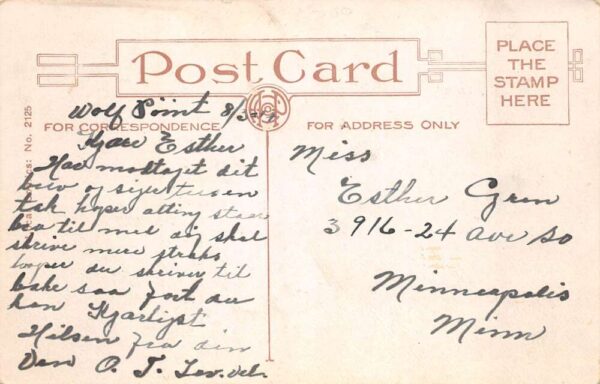 Post Card
PLACE
THE
STAMP
HERE
FOR CORRESPONDENCE
FOR ADDRESS ONLY
No. 2125
Wolf Point 8/
Kjære Esther
Har modtaget dit
brev og siger tusen
tak haper alting staar
bra til med dig skal
skrive mere straks
haaper du skriver til
bake saa fort du
kan Kjærligst
Hilsen fra din
Ven O. T.
Miss
Esther Gren
3916-24 Ave So
Minneapolis
Minn